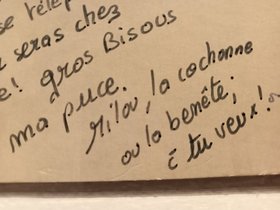 se télép
u seras chez
e! gros Bisous
ma puce.
Milou, la cochonne
ou la benête,
c tu veux!